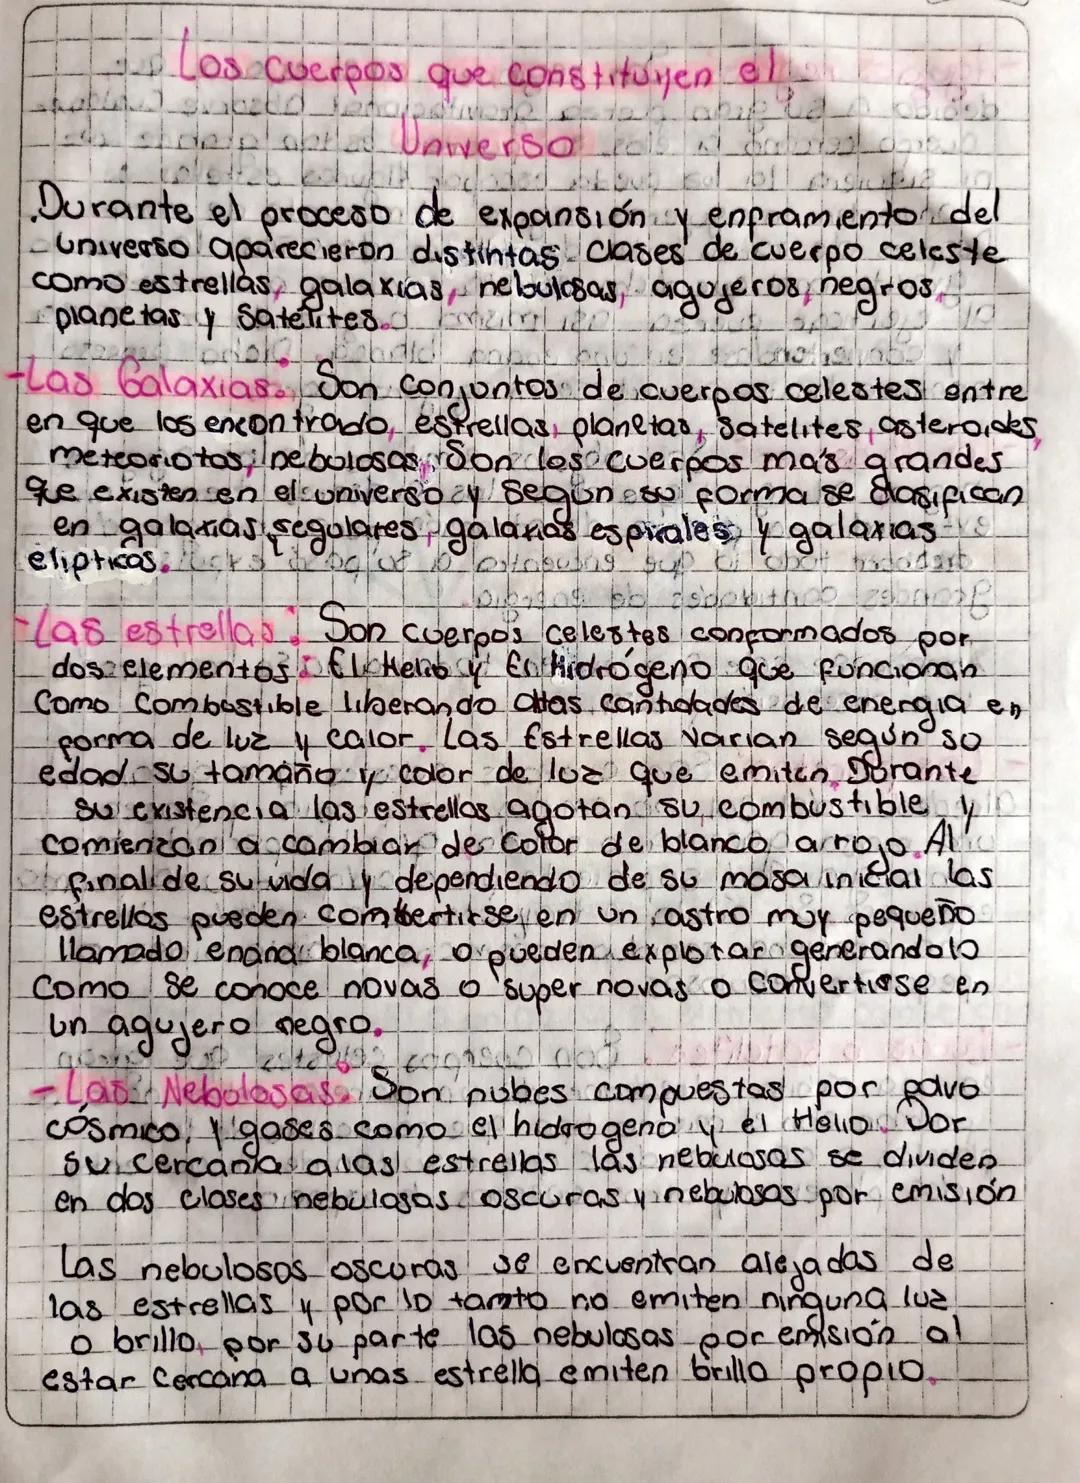 Los cuerpos que constituyen el
Universo
.Durante el proceso de expansión y enframiento del
universo aparecieron distintas clases de cuerpo celeste
como estrellas, galaxias, nebulosas, agujeros, negros,
planetas y Satelites.
-Las Galaxias: Son conjuntos de cuerpos celestes entre
en que los encontrado, estrellas, planetas, satelites, asteroides,
meteoriotos, nebolosas, Son los cuerpos más grandes
que existen en el universo y según su forma se clasifican
en galaxias, regulares, galaxias espirales, y galaxias
elipticas.
-Las estrellas: Son cuerpos celestes conformados por
dos elementos: El Helio y El Hidrógeno que funcionan
Como Combustible liberando altas cantidades de energia en
forma de luz y calor. Las Estrellas Varian según so
edad su tamaño y color de luz que emiten, Dorante
su existencia las estrellas agotan su combustible y
comienzan a cambiar de Color de blanco a rojo. Al
final de su vida y dependiendo de su masa inicial las
estrellas pueden combertirse, en un astro muy pequeño
llamado enana blanca, o pueden explotar generandolo
Como se conoce novas o super novas o Convertirse en
un agujero negro.
-Las Nebolosas: Son nubes compuestas por polvo
cósmico, y gases como el hidrogeno y el Helio. Por
su cercania a las estrellas las nebulosas se dividen
en dos clases nebulosas oscuras y nebulosas por emisión
Las nebulosas oscuras se encuentran alejadas de
las estrellas y por lo tanto no emiten ninguna luz
o brillo, por su parte las nebulosas por emisión al
estar Cercana a unas estrella emiten brillo propio.